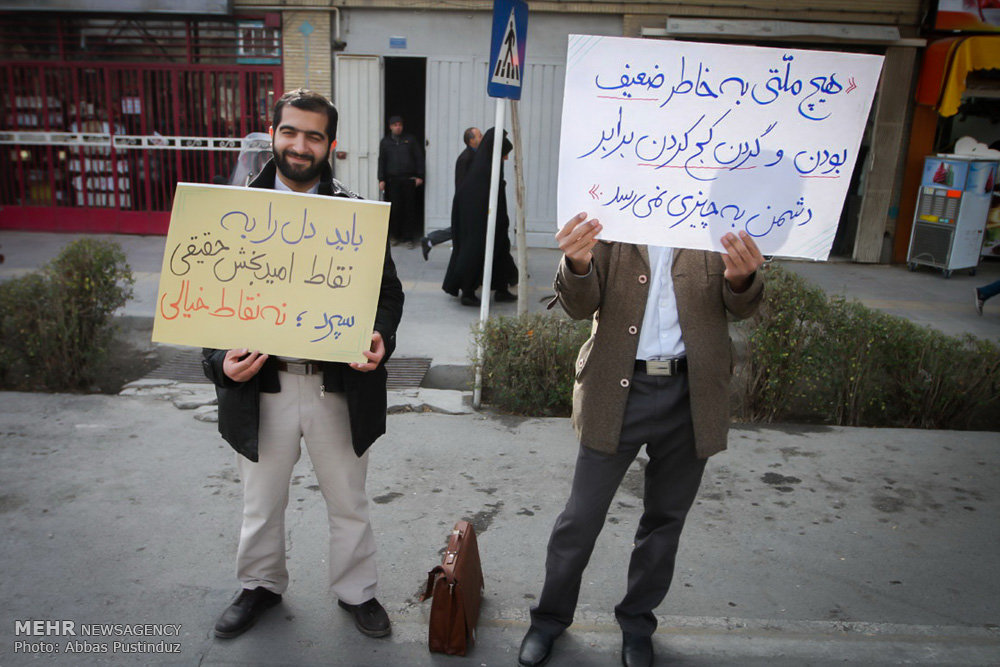 باید دل را به
نقاط امیدبخش حقیقی
سپرد ؛ نه نقاط خیالی
«هیچ ملّتی به خاطر ضعیف
بودن و گردن کج کردن برابر
دشمن به چیزی نمی رسد.»
MEHR NEWSAGENCY
Photo: Abbas Pustinduz